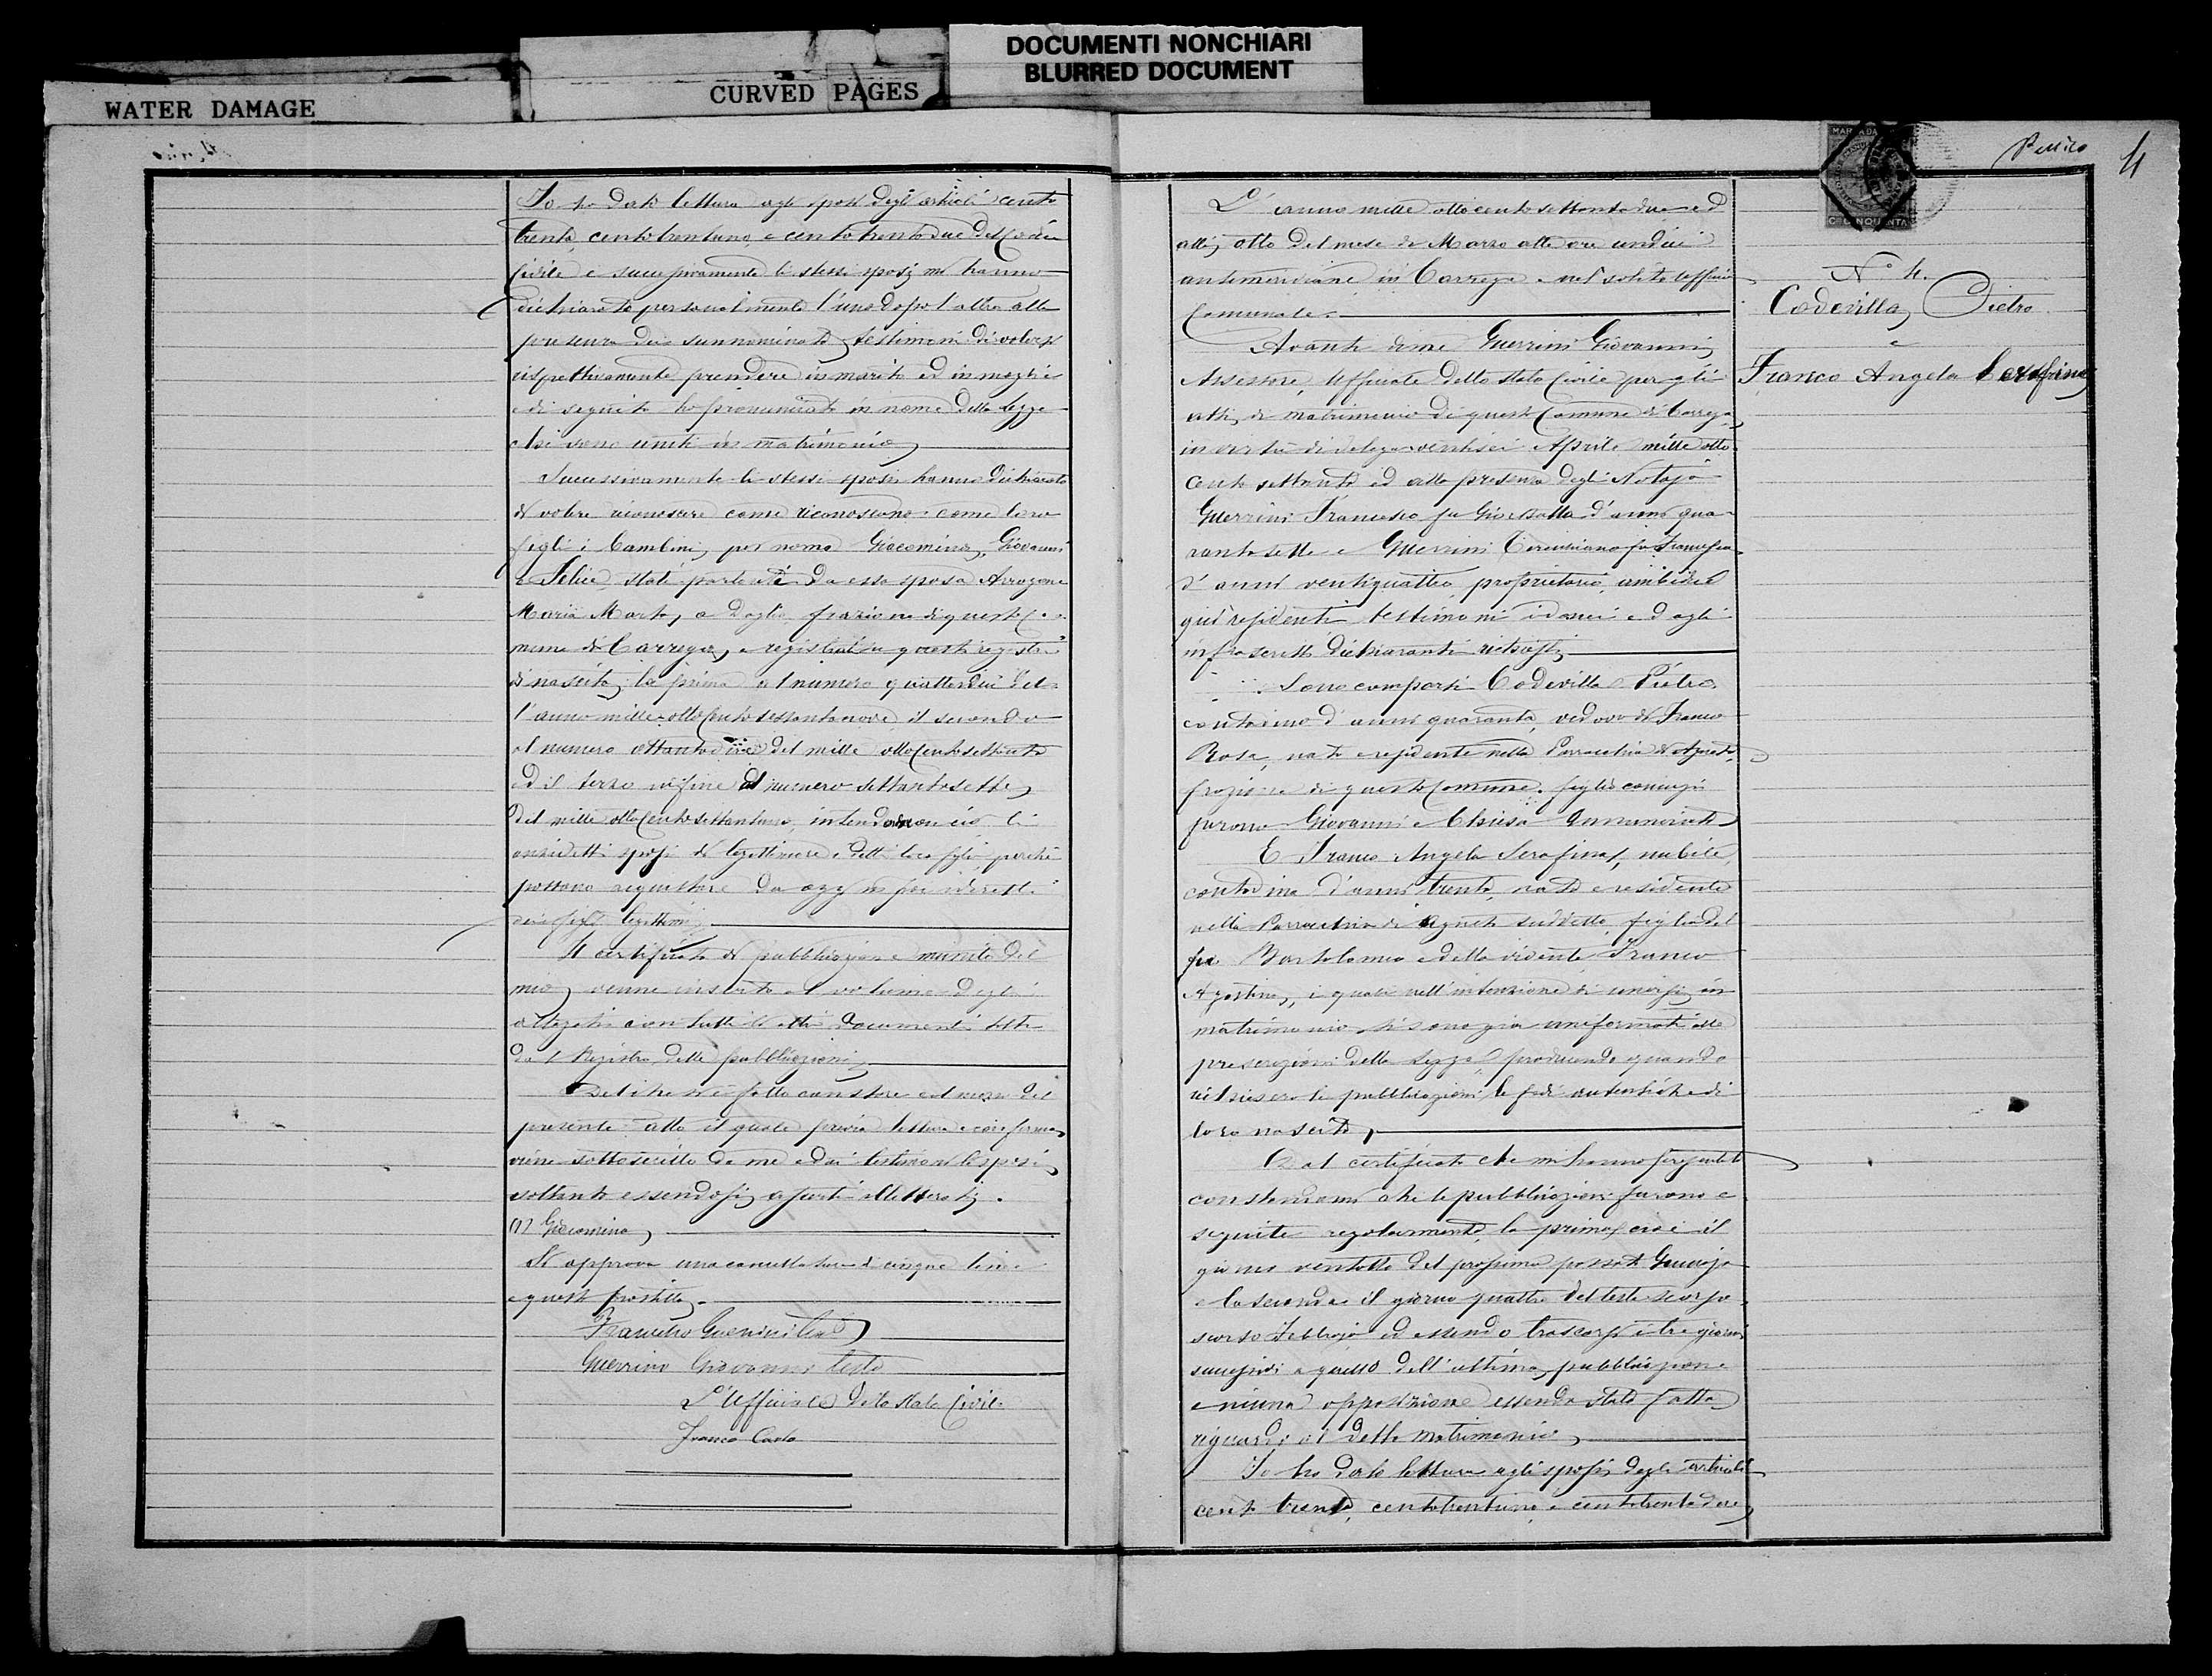 DOCUMENTI NONCHIARI
BLURRED DOCUMENT
CURVED PAGES
WATER DAMAGE
Io ho dato lettura agli sposi degli articoli cento
trenta, centotrentuno, e centotrentadue del Codice
Civile e successivamente li stessi sposi mi hanno
dichiarato personalmente l'uno dopo l'altro alla
presenza dei sunnominati testimoni di volersi
rispettivamente prendere in marito ed in moglie
e di seguito ho pronunciato in nome della legge
che sono uniti in matrimonio
Successivamente li stessi sposi hanno dichiarato
di volere riconoscere come riconoscono come loro
figli i bambini per nome Giacomina, Giovanni
e Felice stati partoriti da essa sposa Arrogone
Maria Marta, a Daglio frazione di questo Co
mune di Carrega, e registrati in questi registri
di nascita, la prima al numero quattordici del
l'anno mille ottocento sessantanove, il secondo
al numero ottantadue del mille ottocento settanta
ed il terzo infine al numero settantasette
del mille ottocento settantuno, intendono con ciò li
anzidetti sposi di legittimare i detti loro figli perchè
possano acquistare da oggi in poi i diritti
dei figli legittimi
Il certificato di pubblicazione munito del
mio venne inserito al volume degli
allegati con tutti li altri documenti
dal Registro delle pubblicazioni
Del che si è fatto constare col mezzo del
presente atto il quale previa lettura e conferma
viene sottoscritto da me ed ai testimoni
soltanto essendosi illetterati.
(1) Giacomina
Si approva una cancellatura di cinque linee
e questa postilla.
Francesco Guerrini
Guerrino Giovanni teste
L'Ufficiale dello Stato Civile
Franco Carlo
4
CINQUANTA
L'anno mille ottocento settantadue ed
alli otto del mese di Marzo alle ore undici
antimeridiane in Carrega e nel solito Ufficio
Comunale.
Avanti di me Guerrini Giovanni
Assessore, Ufficiale dello Stato Civile per gli
atti di matrimonio di questo Comune di Carrega
in virtù di delega ventisei Aprile mille otto
cento settanta ed alla presenza degli Notajo
Guerrini Francesco fu Gio Batta d'anni qua
rantasette e Guerrini fu Francesco
d'anni ventiquattro, proprietario, ambidue
qui residenti testimoni idonei e dagli
infrascritti dichiaranti richiesti
Sono comparsi Codevilla Pietro
contadino d'anni quaranta, vedovo di Franco
Rosa, nato e residente nella Parrocchia di Agneto
frazione di questo Comune. figlio coniugi
furono Giovanni e Chiesa Annunciata
E Franco Angela Serafina, nubile,
contadina d'anni trenta, nata e residente
nella Parrocchia di Agneto suddetta, figlia del
fu Bartolomeo e della vivente Franco
Agostina, i quali nell'intenzione di unirsi in
matrimonio si sono già uniformati alle
prescrizioni della Legge producendo quando
richiesero le pubblicazioni le fedi autentiche di
loro nascita,
Dal certificato che mi hanno presentato
constandomi che le pubblicazioni furono e
seguite regolarmente, la prima cioè il
giorno ventotto del prossimo passato Gennajo
e la seconda il giorno quattro del teste scorso
scorso Febbrajo ed essendo trascorsi i tre giorni
successivi a quello dell'ultima pubblicazione
e niuna opposizione essendo stata fatta
riguardo al detto matrimonio
Io ho dato lettura agli sposi degli articoli
cento trenta, centotrentuno, e centotrentadue
N.° 4.
Codevilla Pietro
e
Franco Angela Serafina